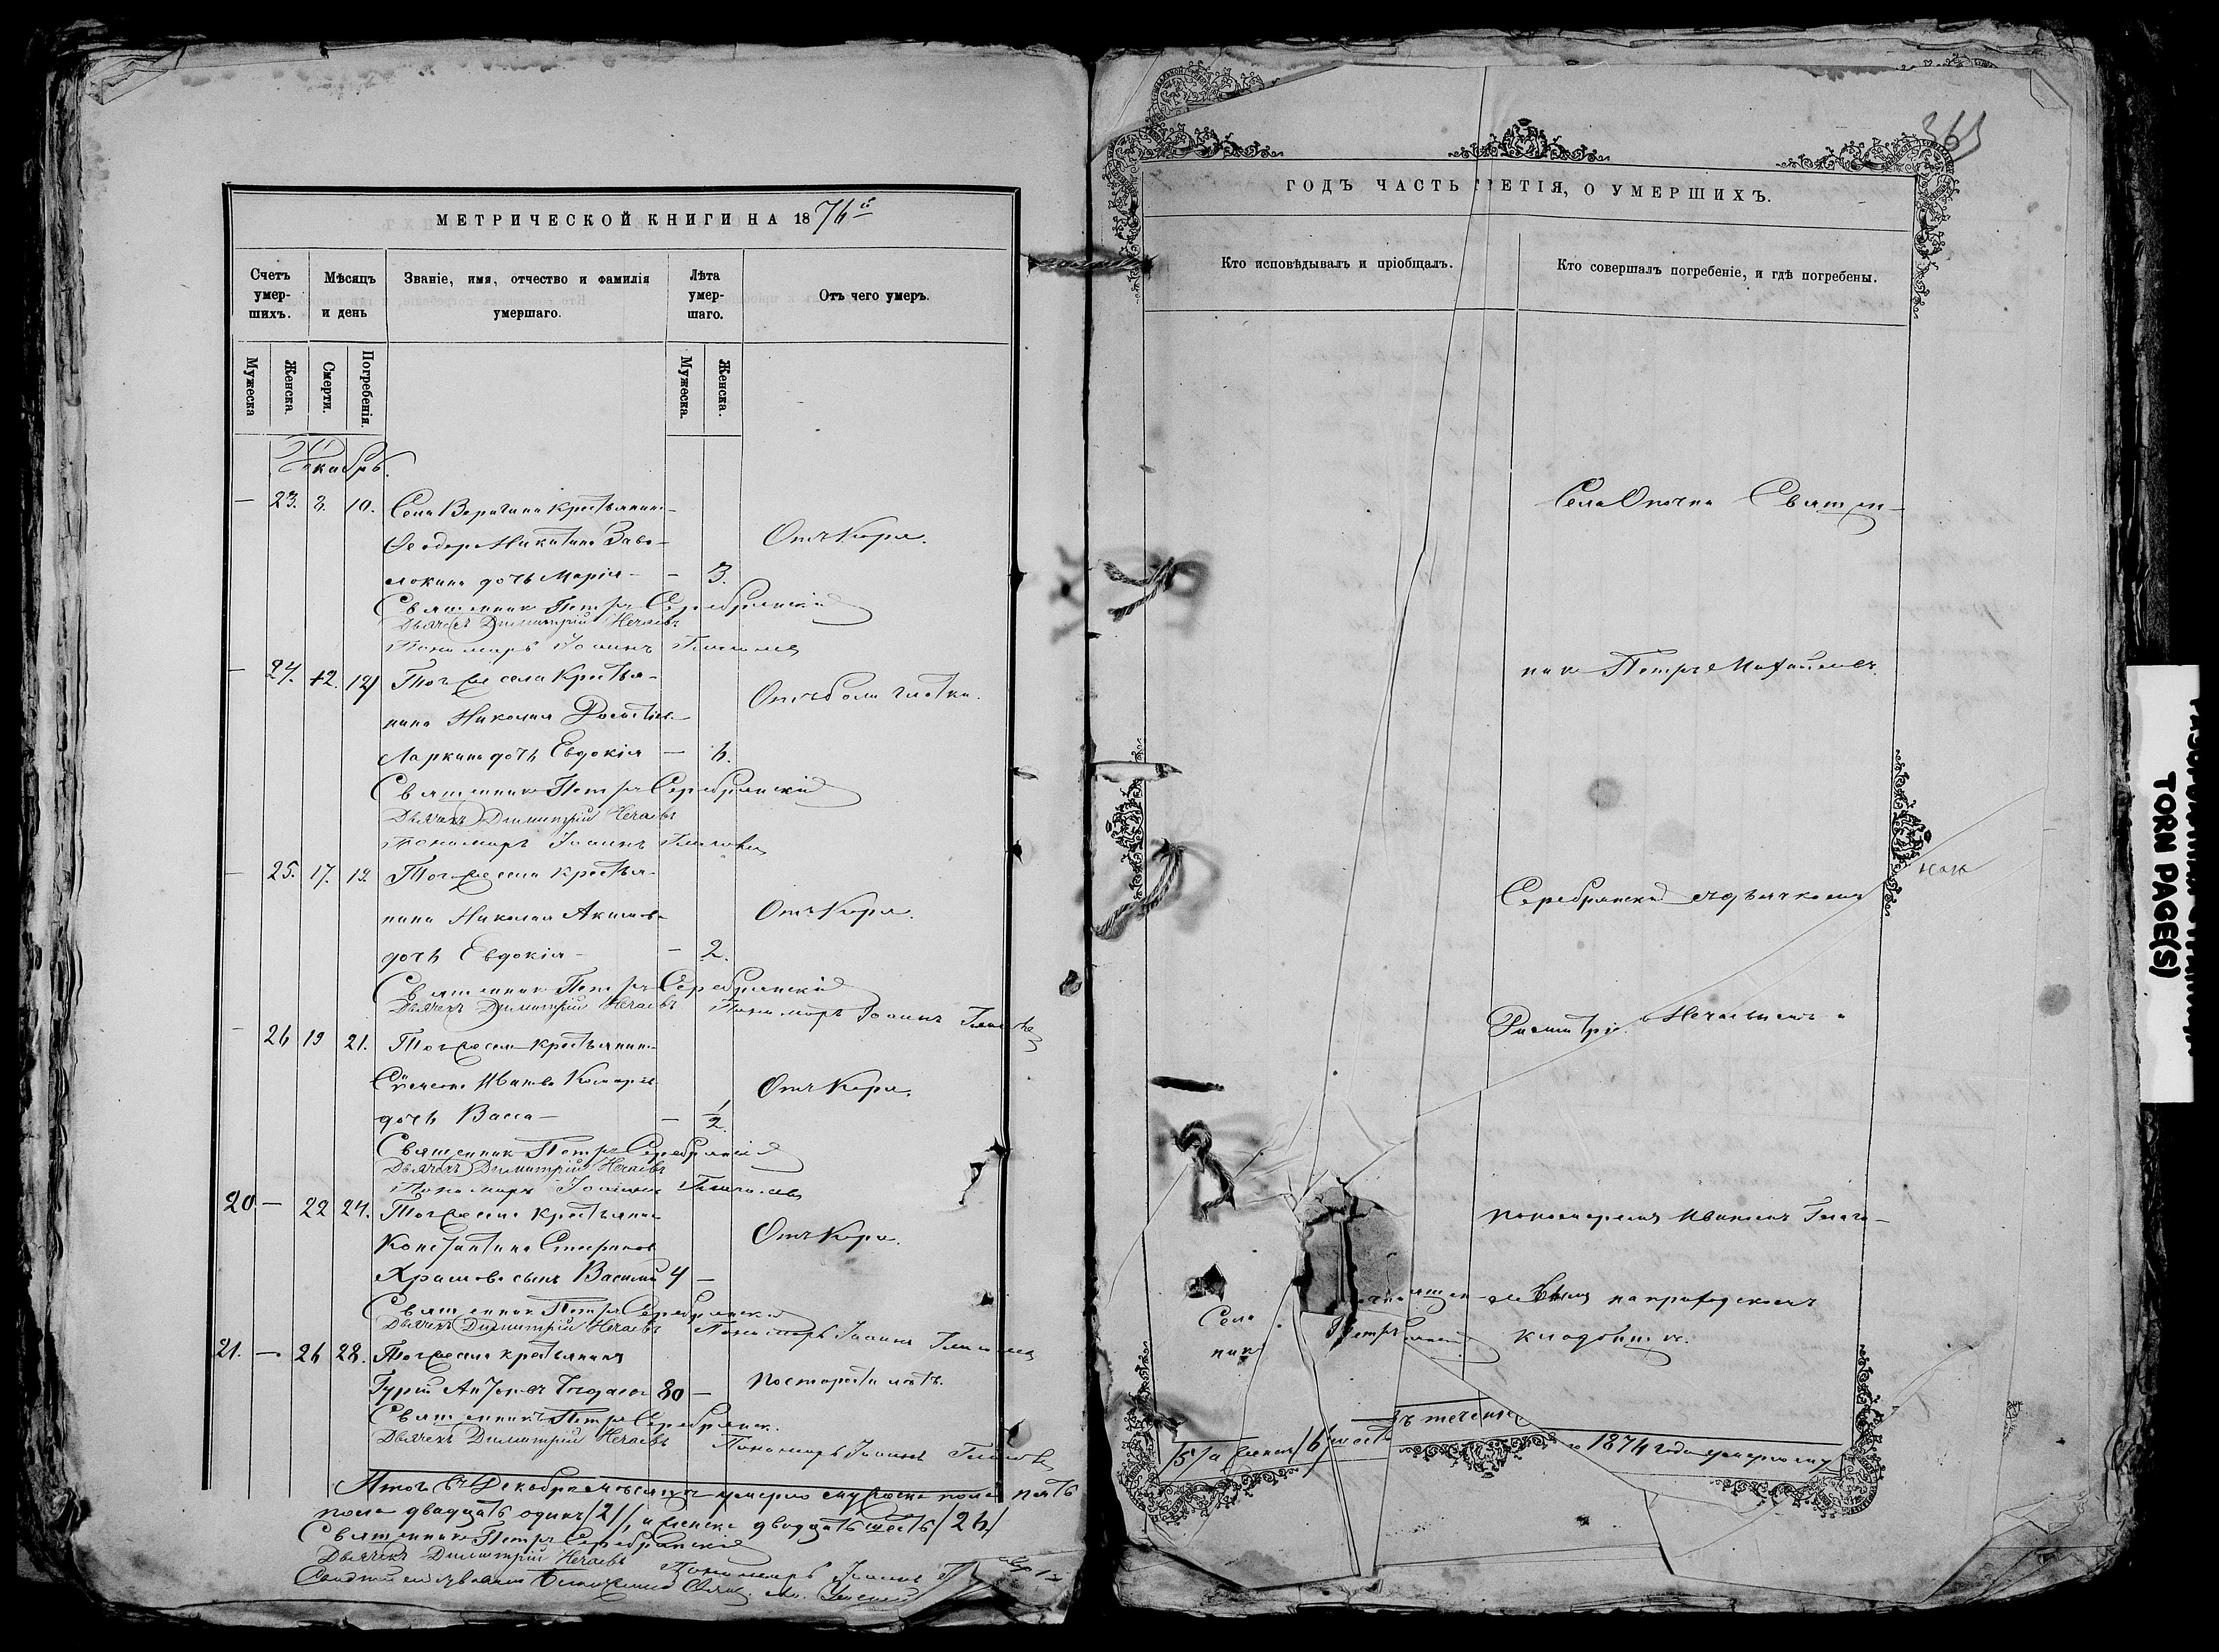 МЕТРИЧЕСКОЙ КНИГИ НА 1876й
Счетъ умер-шихъ. Мѣсяцъ и день Званіе, имя, отчество и фамилія умершаго. Лѣта умер-шаго. Отъ чего умеръ.
Мужеска Женска. Смерти. Погребенія. Мужеска. Женска.
Декабрь.
— 23. 8. 10. Села Верятина крестьянина
Ѳеодора Никитина Заво-
локина дочь Марія — — 3. Отъ Кори.
Священникъ Петръ Серебрянскій
Дьячекъ Димитрій Нечаевъ
Пономарь Іоаннъ
— 24. 12. 14 Тогоже села крестья-
нина Николая
Ларкина дочь Евдокія — 6. Отъ боли глотки.
Священникъ Петръ Серебрянскій
Дьячекъ Димитрій Нечаевъ
Пономарь Іоаннъ
— 25. 17. 19. Тогоже села крестья-
нина Николая Акимова
дочь Евдокія — — 2. Отъ Кори.
Священникъ Петръ Серебрянскій
Дьячекъ Димитрій Нечаевъ Пономарь Іоаннъ
— 26 19 21. Тогоже села крестьянина
Иванова
дочь Васса — — 1/2 Отъ Кори.
Священникъ Петръ Серебрянскій
Дьячекъ Димитрій Нечаевъ
Пономарь Іоаннъ
20 — 22 24. Тогоже села крестьянина
Константина Стефанова
Храмова сынъ Василій 4 — Отъ Кори.
Священникъ Петръ Серебрянскій
Дьячекъ Димитрій Нечаевъ Пономарь Іоаннъ
21. — 26 28. Тогоже села крестьянинъ
Гурій 80 — По старости лѣтъ.
Священникъ Петръ Серебрянск.
Дьячекъ Димитрій Нечаевъ Пономарь Іоаннъ
Итого въ Декабрѣ мѣсяцѣ умерло мужеска пола пять
пола двадцать одинъ /21/, и женска двадцать шесть /26/
Священникъ Петръ Серебрянскій
Дьячекъ Димитрій Нечаевъ Пономарь Іоаннъ
363
ГОДЪ ЧАСТЬ ТРЕТІЯ, О УМЕРШИХЪ.
Кто исповѣдывалъ и пріобщалъ. Кто совершалъ погребеніе, и гдѣ погребены.
Села Священ-
никъ Петръ Михайловъ
Серебрянскій съ дьячкомъ
Димитріемъ Нечаевымъ и
пономаремъ Иваномъ
на приходскомъ
кладбищѣ.
Села
никъ Петръ
/5/ а женска /6/ шесть въ теченіе 1874 года умерло муж
TORN PAGE(S)